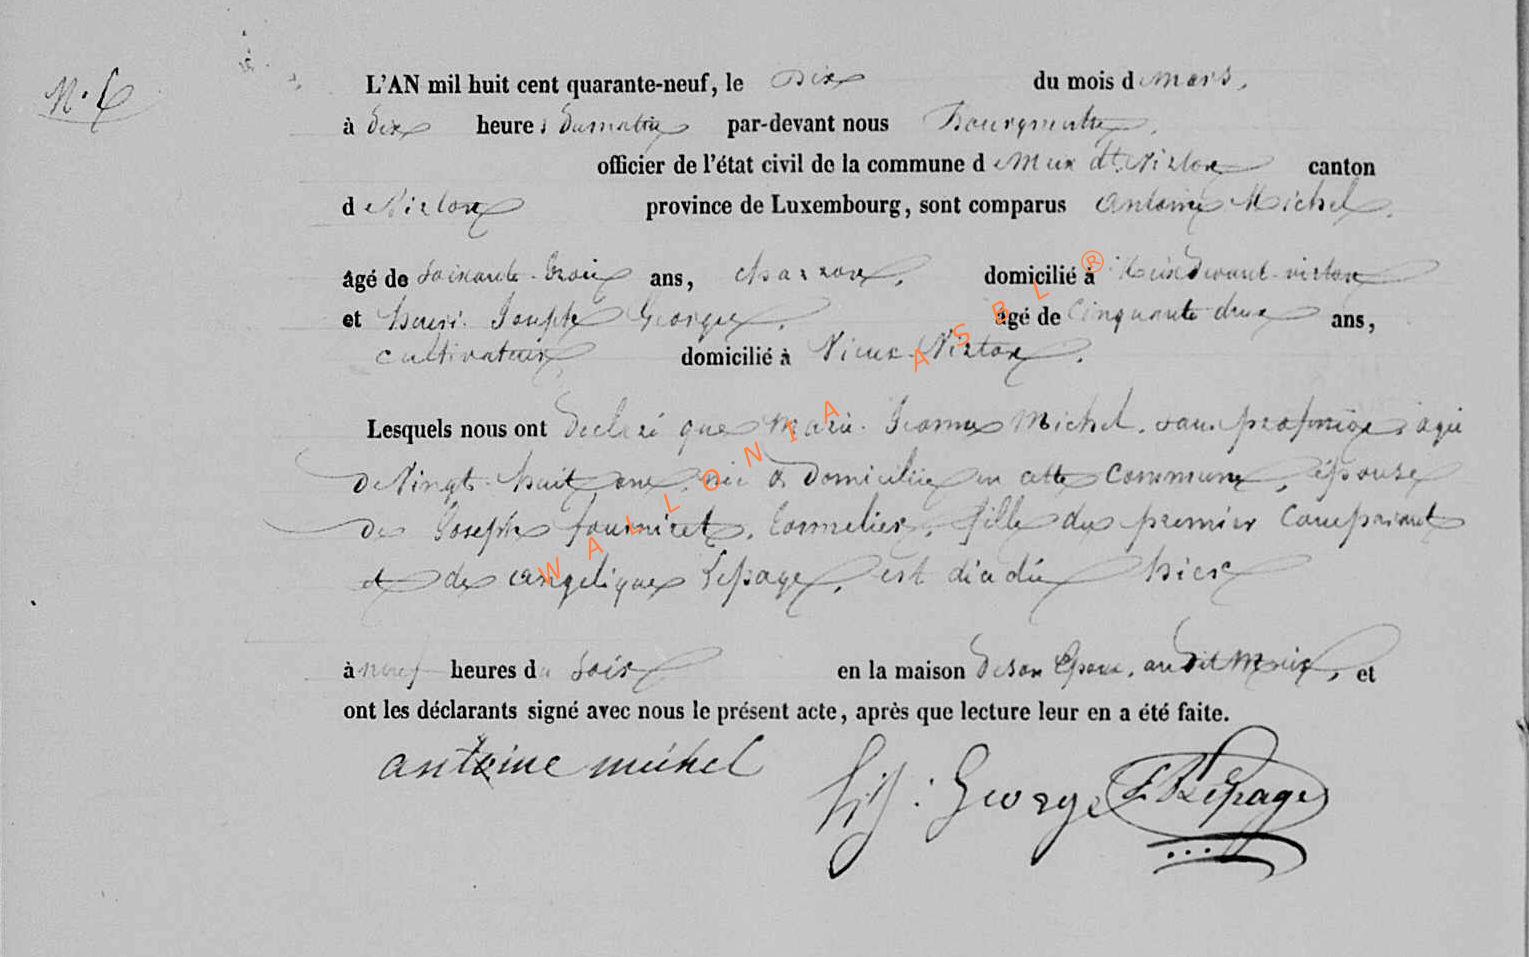 N. 6
L'AN mil huit cent quarante-neuf, le Dix du mois d mars,
à Dix heures Dumatin par-devant nous Bourgmestre,
officier de l'état civil de la commune d Meix dt Virton canton
d Virton province de Luxembourg, sont comparus Antoine Michel,
âgé de Soixante trois ans, charron, domicilié à Meix Devant virton
et henri Joseph Georges, âgé de Cinquante deux ans,
cultivateur domicilié à Vieux Virton,
Lesquels nous ont Déclaré que Marie Jeanne Michel, sans profession, agée
De Vingt huit ans, née & Domiciliée en cette Commune, épouse
De Joseph fourniret, tonnelier, fille du premier Comparant
et de angelique Lepage, est décédée hier
à neuf heures du Soir en la maison De son Epoux, au dit Meix, et
ont les déclarants signé avec nous le présent acte, après que lecture leur en a été faite.
antoine michel
hJ: George Lepage
WALLONIA ASBL ®